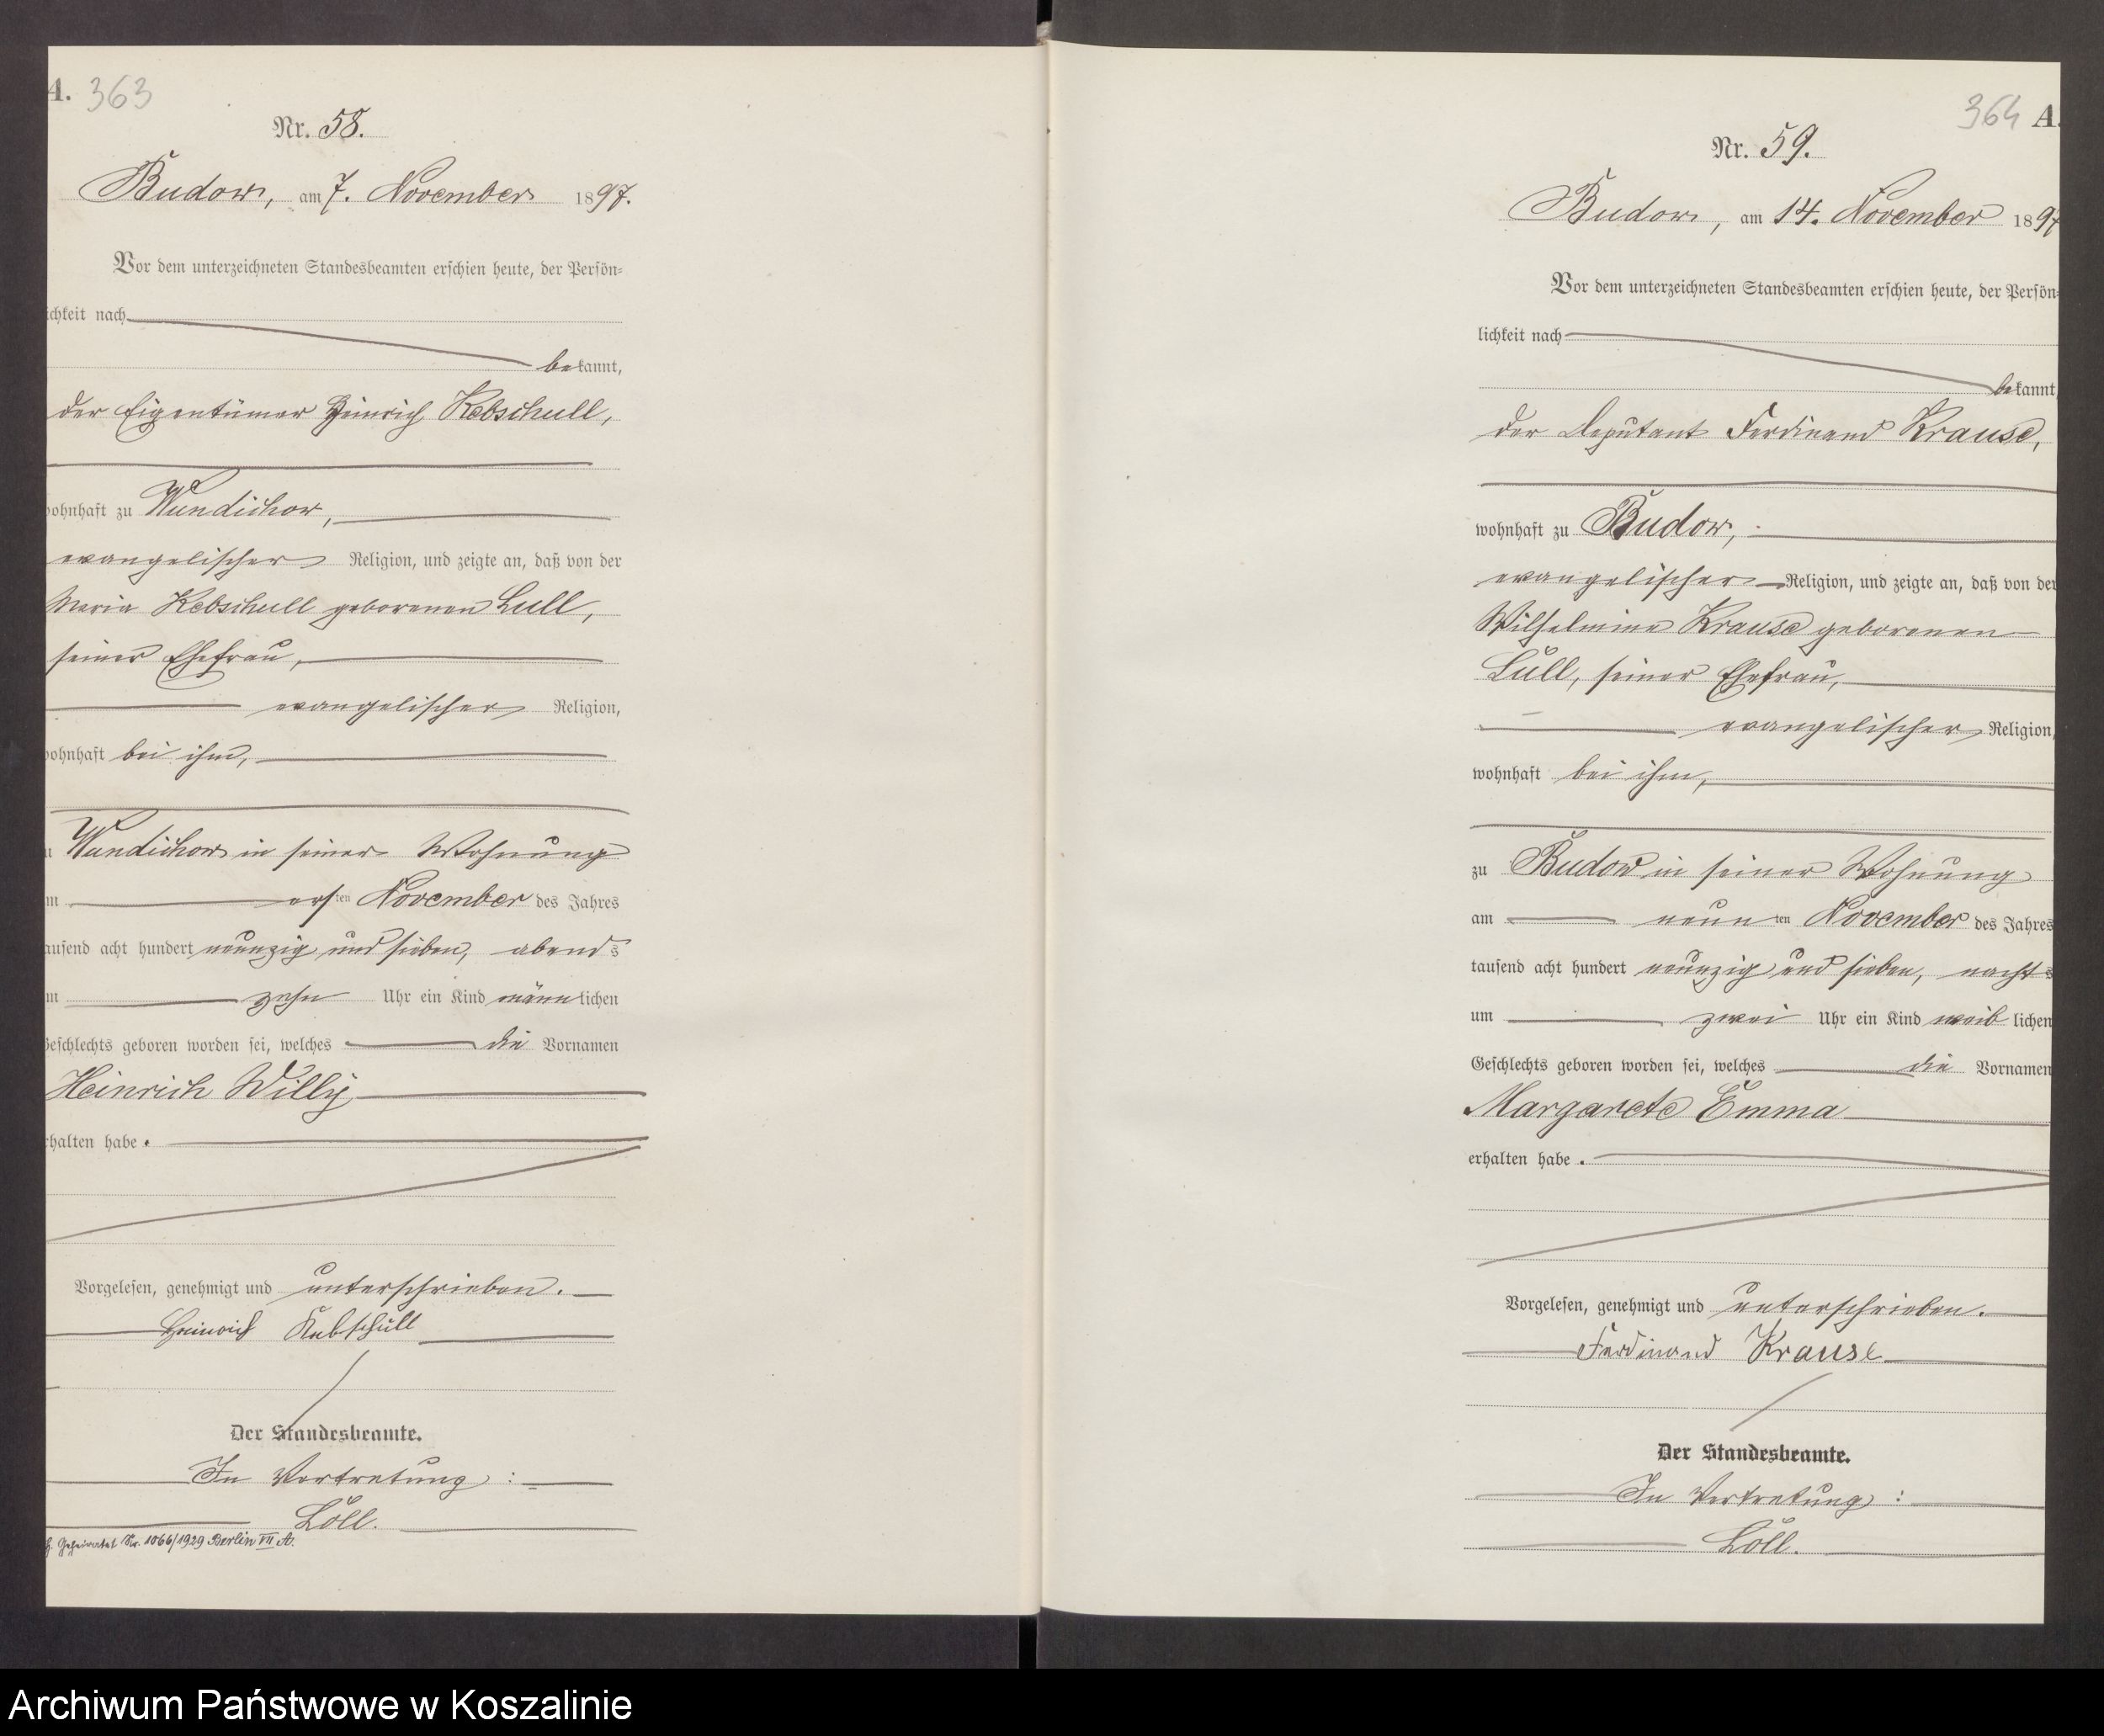 A. 363
Nr. 58.
Budow, am 7. November 1897.
Vor dem unterzeichneten Standesbeamten erschien heute, der Persön=
ichkeit nach
bekannt,
der Eigentümer Heinrich Kebschull,
wohnhaft zu Wundichow,
evangelischer Religion, und zeigte an, daß von der
Maria Kebschull geborenen Lull,
seiner Ehefrau,
evangelischer Religion,
wohnhaft bei ihm,
zu Wundichow in seiner Wohnung
am ersten November des Jahres
tausend acht hundert neunzig und sieben, abends
um zehn Uhr ein Kind männlichen
Geschlechts geboren worden sei, welches die Vornamen
Heinrich Willy
erhalten habe.
Vorgelesen, genehmigt und unterschrieben.
Heinrich Kebschull
Der Standesbeamte.
In Vertretung:
Löll.
Geheiratet Nr. 1066/1929 Berlin VII A.
364 A.
Nr. 59.
Budow, am 14. November 1897
Vor dem unterzeichneten Standesbeamten erschien heute, der Persön=
lichkeit nach
bekannt
der Deputant Ferdinand Krause,
wohnhaft zu Budow,
evangelischer Religion, und zeigte an, daß von der
Wilhelmine Krause geborenen
Lüll, seiner Ehefrau,
evangelischer Religion,
wohnhaft bei ihm,
zu Budow in seiner Wohnung
am neunten November des Jahres
tausend acht hundert neunzig und sieben, nachts
um zwei Uhr ein Kind weiblichen
Geschlechts geboren worden sei, welches die Vornamen
Margarete Emma
erhalten habe.
Vorgelesen, genehmigt und unterschrieben.
Ferdinand Krause
Der Standesbeamte.
In Vertretung:
Löll.
Archiwum Państwowe w Koszalinie